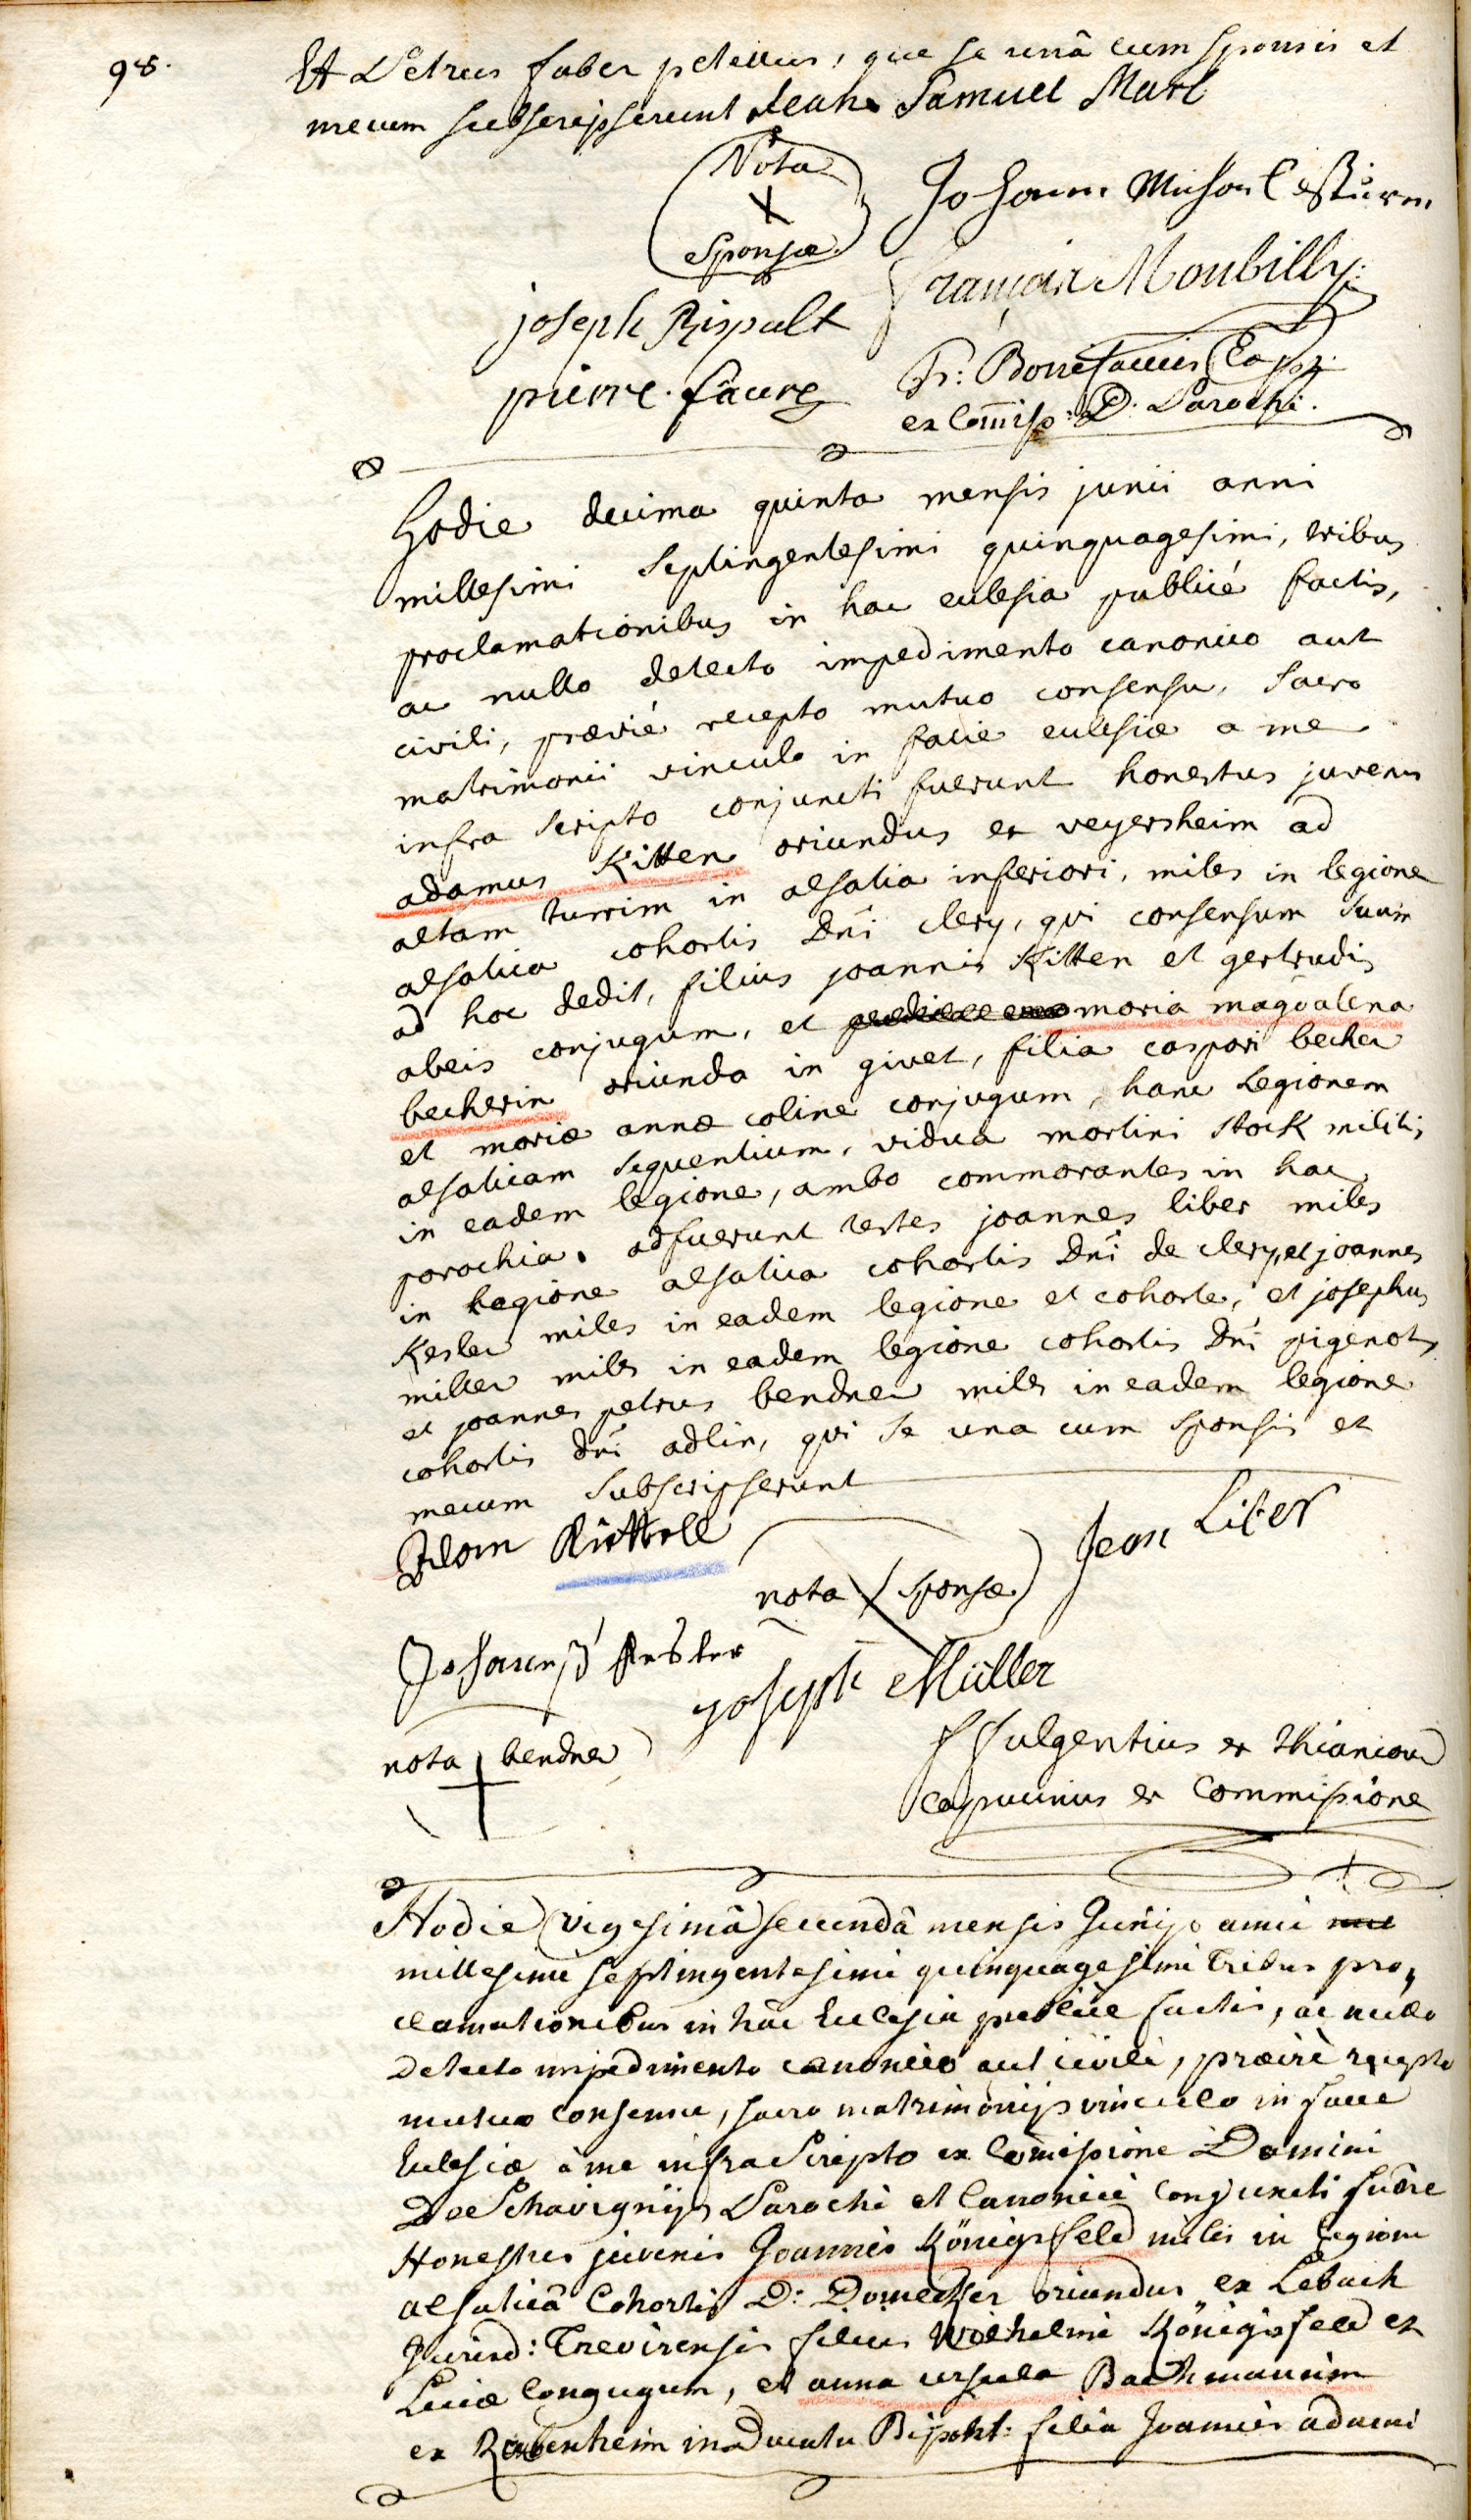 98.
Et Petrus faber petitus, que se unâ cum sponsis et
mecum subscripserunt Jean Samuel Marc
Nota
X
Sponsæ
Johann
françois Moubilly
joseph Rispalt
pierre faure
fr: Bonifacius Capp:
ex Commiss: D: Parochi.
Hodie decima quinta mensis junii anni
millesimi septingentesimi quinquagesimi, tribus
proclamationibus in hac eclesia publicé factis,
ac nullo detecto impedimento canonico aut
civili, prævié recepto mutuo consensu, sacro
matrimonii vinculo in facie eclesiæ a me
infra scripto conjuncti fuerunt honestus juvenis
adamus Kitten oriundus ex veyersheim ad
altam turrim in alsatia inferiori, miles in legione
alsatica cohortis Dni clery, qui consensum suum
ad hoc dedit, filius joannis Kitten et gertrudis
abeis conjugum, et maria magdalena
becherin oriunda in givet, filia caspari becher
et mariæ annæ coline conjugum, hanc Legionem
alsaticam sequentium, vidua martini stock militis
in eadem legione, ambo commorantes in hac
parochia. adfuerunt testes joannes liber miles
in Legione alsatica cohortis Dni de clery, et joannes
Kesler miles in eadem legione et cohorte, et josephus
miller miles in eadem legione cohortis Dni pigenot,
et joannes petrus bendner miles in eadem legione
cohortis dni adlin, qui se una cum sponsis et
mecum subscripserunt
Adam
Jean Liber
nota X sponsæ
Johannes
joseph Müller
nota bendner
f fulgentius ex thiancour
Capucinus ex Commissione
Hodie vigesimâ secundâ mensis Junij anni
millesimi septingentesimi quinquagesimi tribus pro,
clamationibus in hâc Ecclesia publice factis, ac nullo
detecto impedimento canonico aut civili, prævie recepto
mutuo consensu, sacro matrimonij vinculo in facie
Eclesiæ à me infra Scripto ex Comissione Domini
De Schavignij Parochi et Canonici conjuncti fuêre
Honestus juvenis Joannes Königsfeld miles in legione
alsaticâ Cohortis D: Domecker oriundus ex Lebach
Jurisd: Trevirensis filius Wilhelmi Königsfeld et
Luciæ Conjugum, et anna ursula Bachmannin
ex in Ducatu Bipont: filia Joannis adami